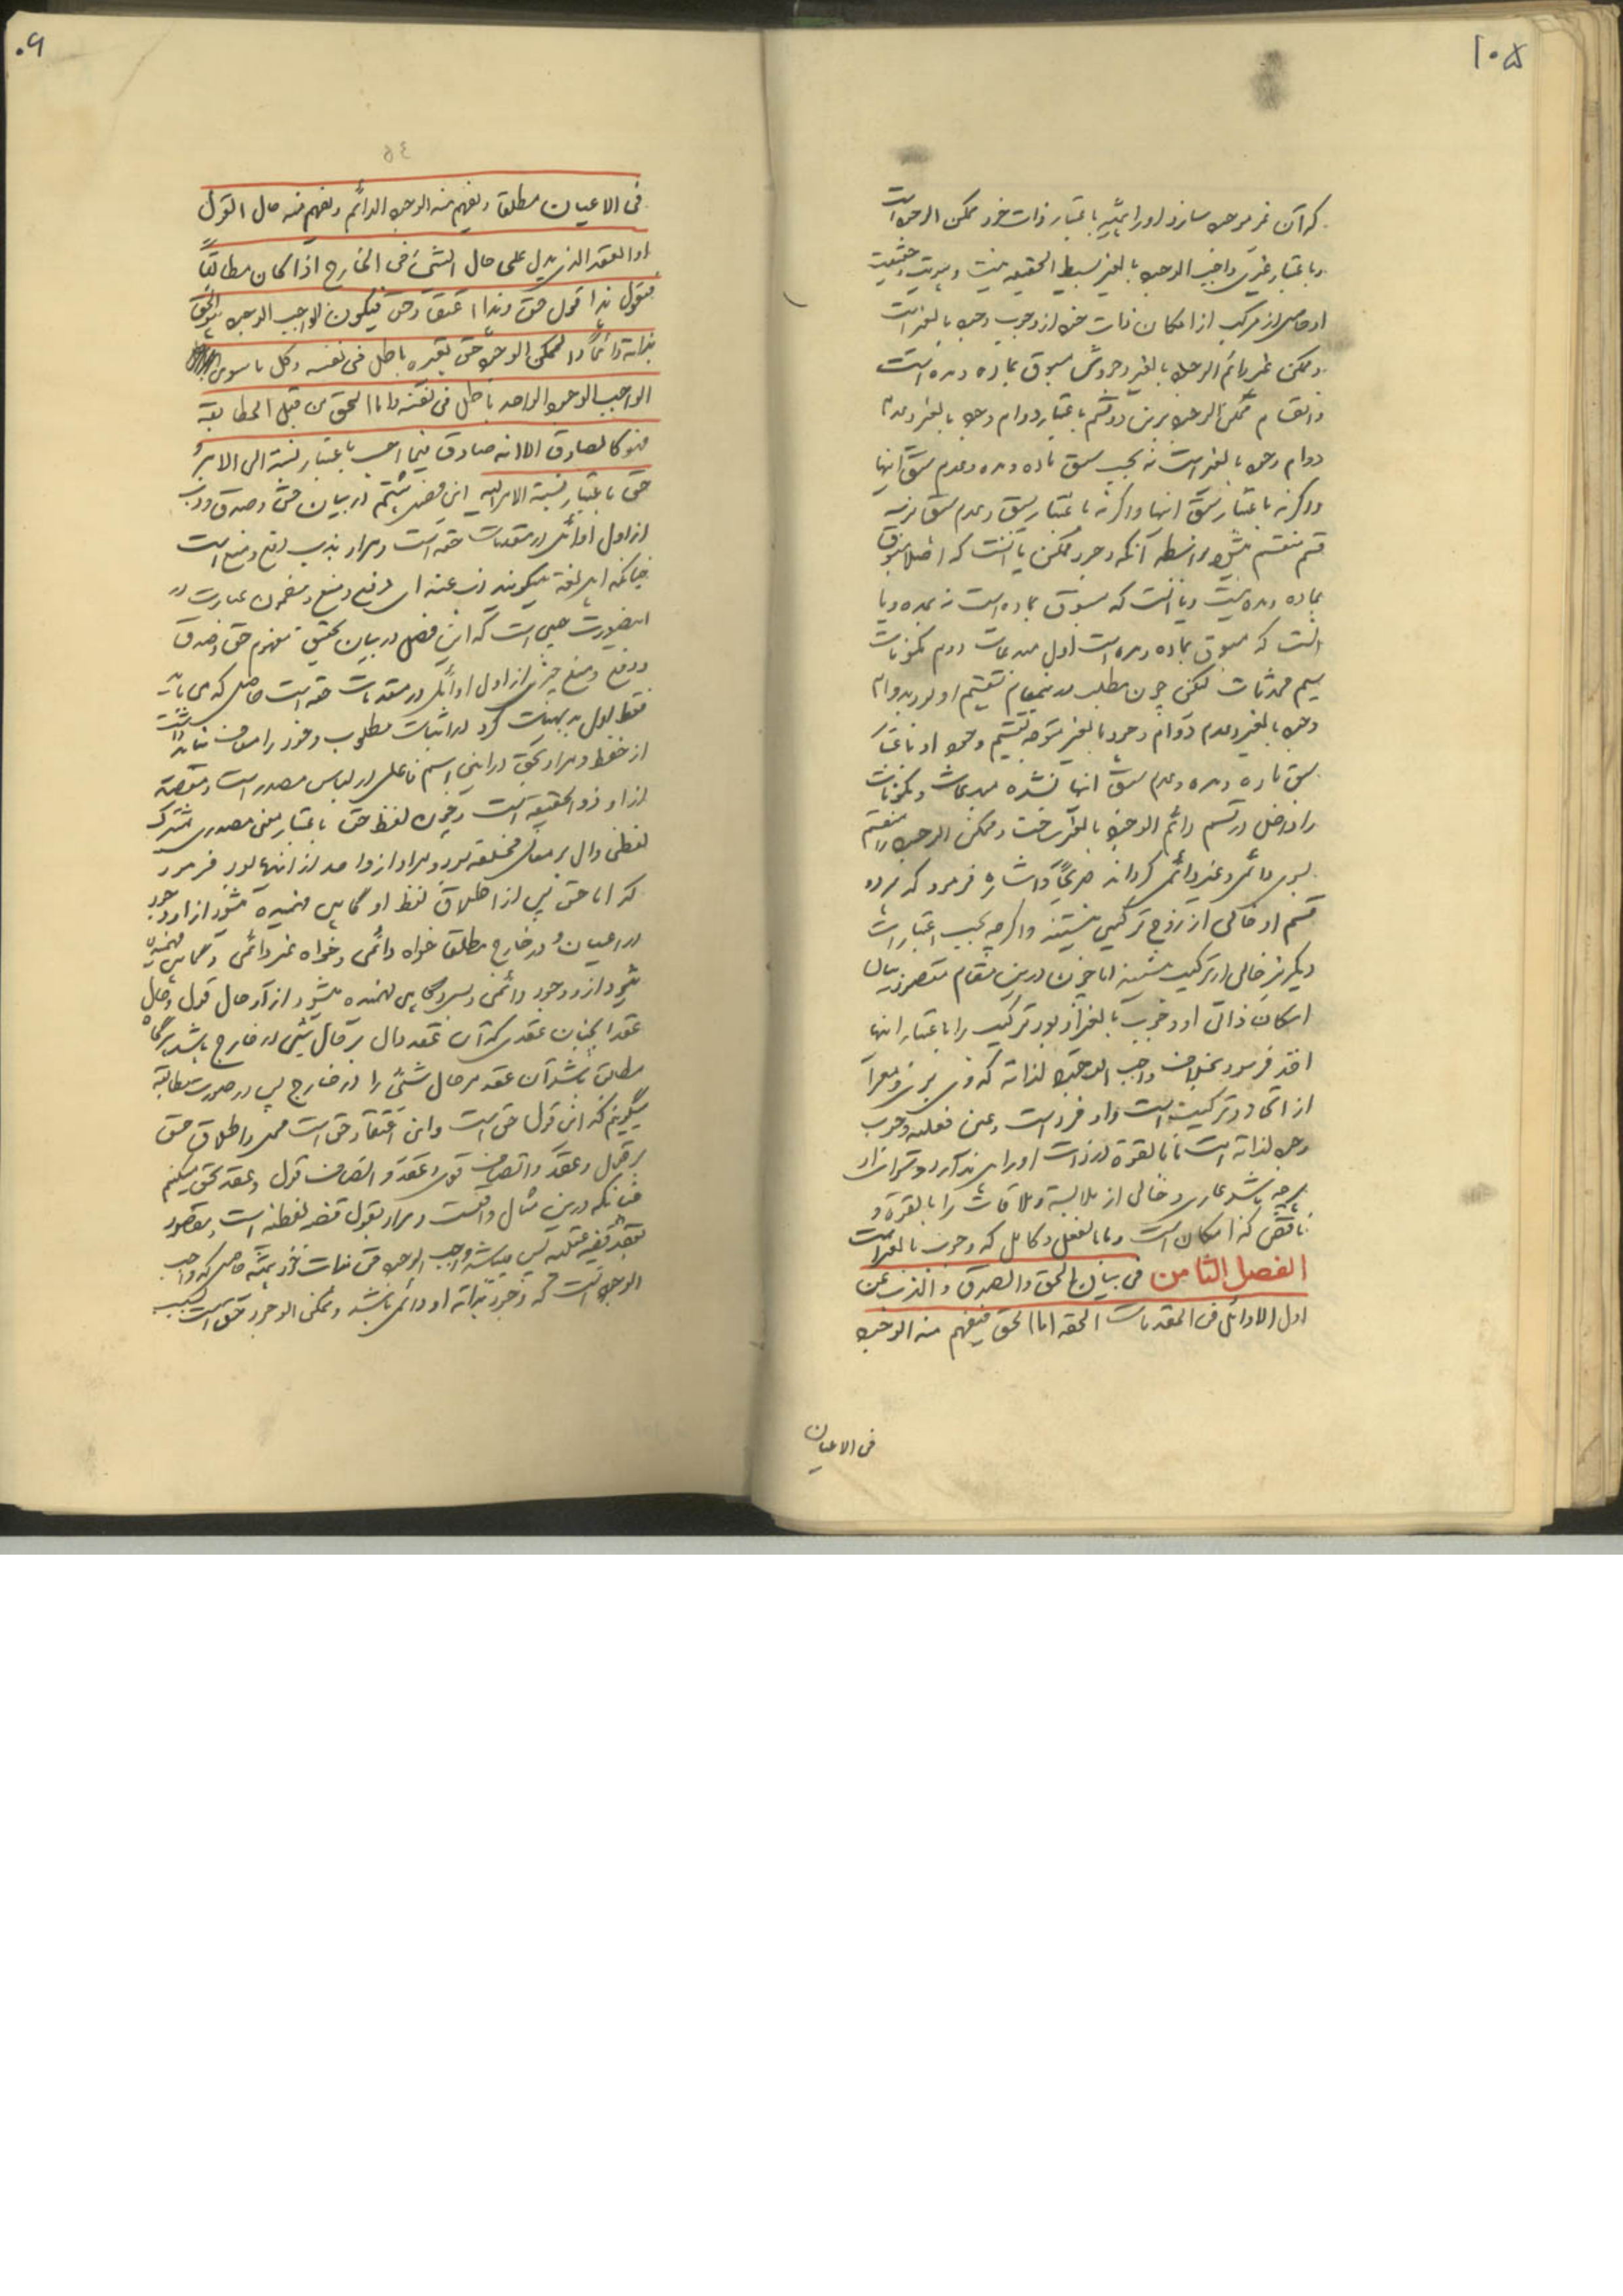 ۱۰۵
که آن غیر موجود سازد او را همیشه باعتبار ذات خود ممکن الوجود است
و باعتبار غیری واجب الوجود بالغیر بسیط الحقیقه نیست و هویت و حقیقت
او حاصل از مرکب از امکان ذات خود از وجوب وجود بالغیر است
و ممکن غیر دائم الوجود بالغیر وجودش مسبوق بماده و مده است
و انقسام ممکن الوجود برین دو قسم باعتبار دوام وجود بالغیر و عدم
دوام وجود بالغیر است نه بحسب سبق ماده و مده و عدم سبق اینها
و اگر نه باعتبار سبق اینها و اگر نه باعتبار سبق و عدم سبق هر سه
قسم منقسم میشد بواسطه آنکه وجود ممکن یا آنست که اصلا مسبوق
بماده و مده نیست و یا آنست که مسبوق بماده است نه بمده و یا
آنست که مسبوق بماده و مده است اول مبدعات دوم مکونات
سیم محدثات لیکن چون مطلب در مقام تقسیم او بود بدوام
وجود بالغیر و عدم دوام وجود بالغیر متوجه تقسیم وجود او باعتبار
سبق ماده و مده و عدم سبق اینها نشده مبدعات و مکونات
را داخل در قسم دائم الوجود بالغیر ساخت و ممکن الوجود را منقسم
بسوی دائمی و غیر دائمی گرداند صریحاً و اشاره فرمود که هر دو
قسم او خالی از زوج ترکیبی نیستند و اگرچه بحسب اعتبارات
دیگر نیز خالی از ترکیب نیستند اما چون درین مقام متصدی بیان
امکان ذاتی او و وجوب بالغیر او بود ترکیب را باعتبار اینها
اخذ فرمود بخلاف واجب الوجود لذاته که
از اتحاد و ترکیب است و او فرد است و عین فعلیه وجوب
وجود لذاته است تا ما بالقوه در ذات او راه ندارد
هرچه باشد عاری و خالی از ملابسة و ملاقات را بالقوه و
ناقص که امکان است و ما بالفعل و کامل که وجوب بالغیر است
الفصل الثامن فی بیان الحق و الصدق و الذب عن
اول الاوائل فی المقدمات الحقه اما الحق فیفهم منه الوجود
فی الاعیان
۰۶
۵۴
فی الاعیان مطلقا و یفهم منه الوجود الدائم و یفهم منه حال القول
او العقد الذی یدل علی حال الشیء فی الخارج اذا کان مطابقاً
فیقول هذا قول حق و هذا اعتقاد حق فیکون الواجب الوجود هو الحق
بذاته دائماً و الممکن الوجود حق بغیره باطل فی نفسه و کل ما سوی
الواجب الوجود الواحد باطل فی نفسه و اما الحق من قبل المطابقه
فهو کالصادق الا انه صادق فیما احسب باعتبار نسبته الی الامر و
حق باعتبار نسبة الامر الیه این فصل هشتم در بیان حق و صدق و ذب
از اول اوائل در مقدمات حقه است و مراد بذب دفع و منع است
چنانکه اهل لغة میگویند ذب عنه ای دفع و منع و مضمون عبارت در
اینصورت چنین است که این فصل در بیان تحقیق مفهوم حق و صدق
و دفع و منع چیزی از اول اوائل در مقدمات حقه است حاصل که می باید
فقط اول بدیهیات کرد در اثبات مطلوب و خود را معاف نباید داشت
از حفظ و مراد بحق در این اسم فاعل در لباس مصدر است و مقصد
از او ذو الحقیقه است و چون لفظ حق باعتبار معنی مصدری مشترک
لفظی و دال بر معانی مختلفه بود و مراد از او احد از آنها بود فرمود
که اما حق پس از اطلاق لفظ او گاهی فهمیده میشود از او وجود
در اعیان و در خارج مطلق خواه دائمی و خواه غیر دائمی و گاهی فهمیده
شود از او وجود دائمی و بس و گاهی فهمیده میشود از آن حال قول و حال
عقد اینچنان عقدی که آن عقد دال بر حال شیء در خارج باشد هرگاه
مطابق باشد آن عقد مر حال شیء را در خارج پس در صورت مطابقه
میگویم که این قول حق است و این اعتقاد حق است و اطلاق حق
بر قول و عقد و اتصاف قول و عقد و اتصاف قول و عقد بحق میکنم
چنانکه درین مثال واقعست و مراد بقول قضیه لفظیه است و مقصود
بعقد قضیه عقلیه پس میباشد واجب الوجود حق بذات خود همیشه حاصل که واجب
الوجود آنست که وجود بذاته او دائمی باشد و ممکن الوجود حق است بسبب